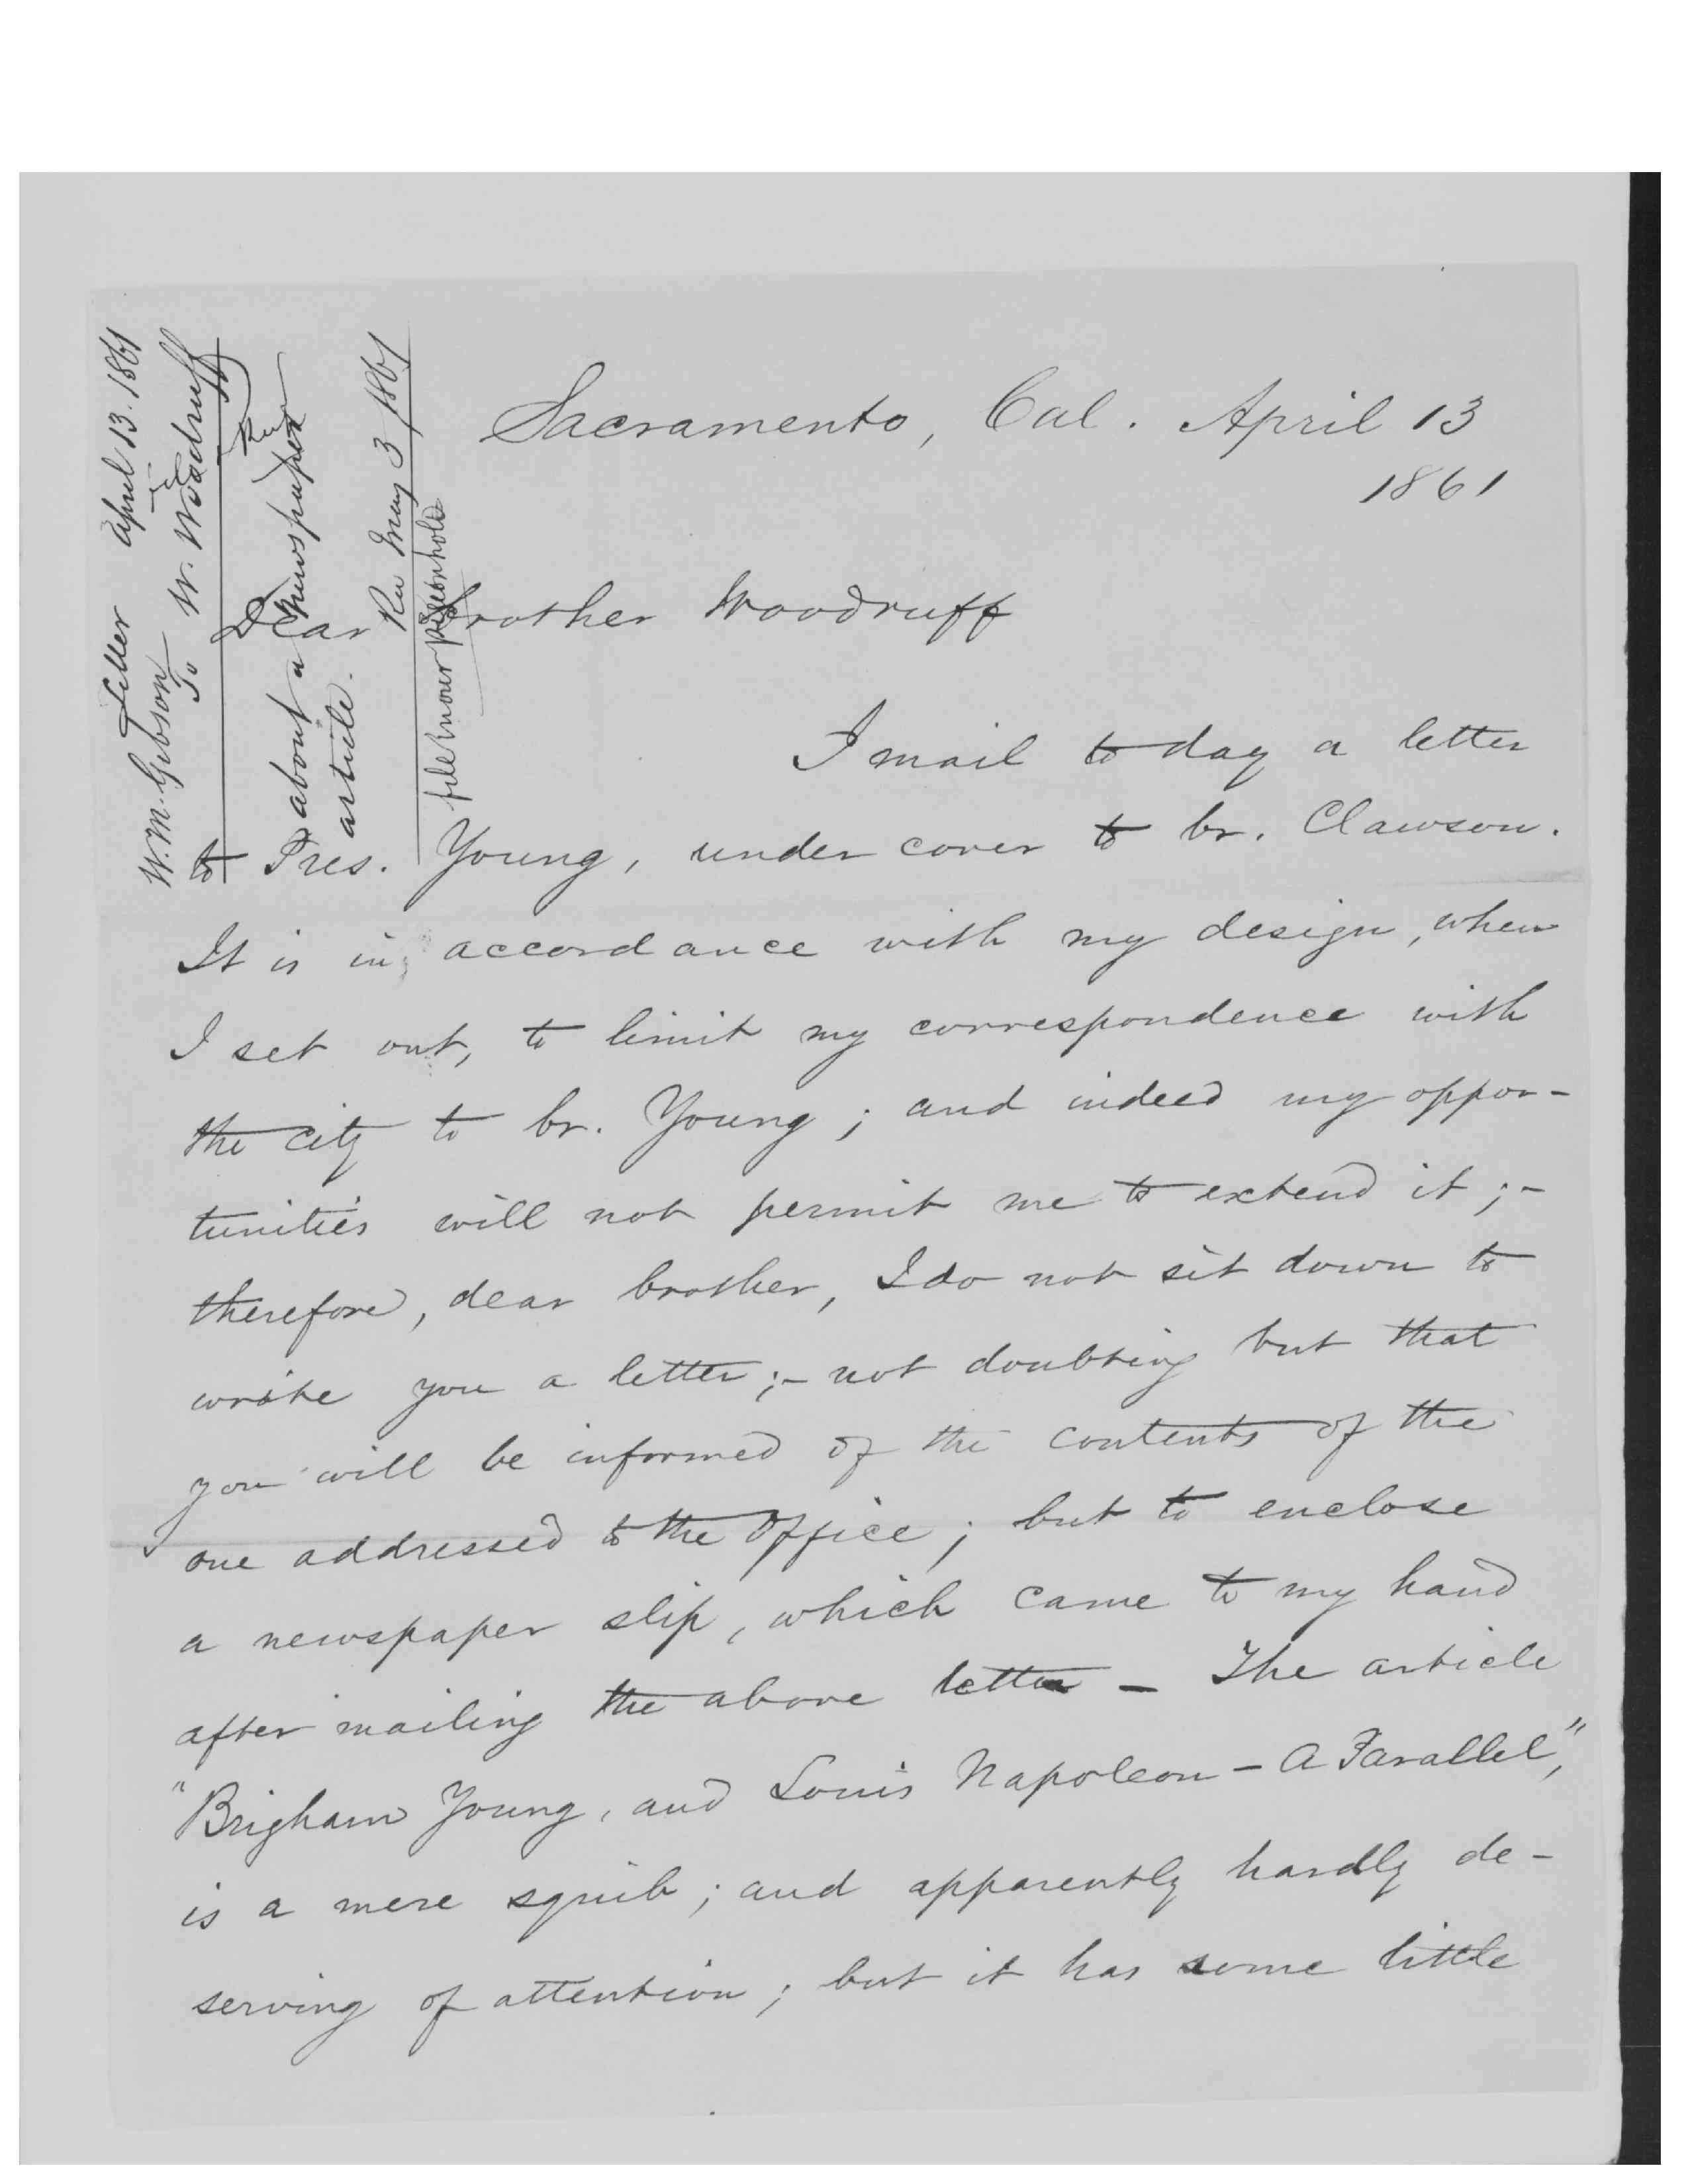 Letter April 13. 1861
W. M. Gibson
To W. Woodruff
about a newspaper
article.
Rec May 3 1861
file in our pigeonhole
Sacramento, Cal. April 13
1861
Dear Brother Woodruff
I mail to day a letter
to Pres. Young, under cover to br. Clawson.
It is in accordance with my design, when
I set out, to limit my correspondence with
the city to br. Young; and indeed my oppor-
tunities will not permit me to extend it;-
therefore, dear brother, I do not sit down to
write you a letter;- not doubting but that
you will be informed of the contents of the
one addressed to the Office; but to enclose
a newspaper slip, which came to my hand
after mailing the above letter - The article
"Brigham Young, and Louis Napoleon - A Parallel",
is a mere squib; and apparently hardly de-
serving of attention; but it has some little